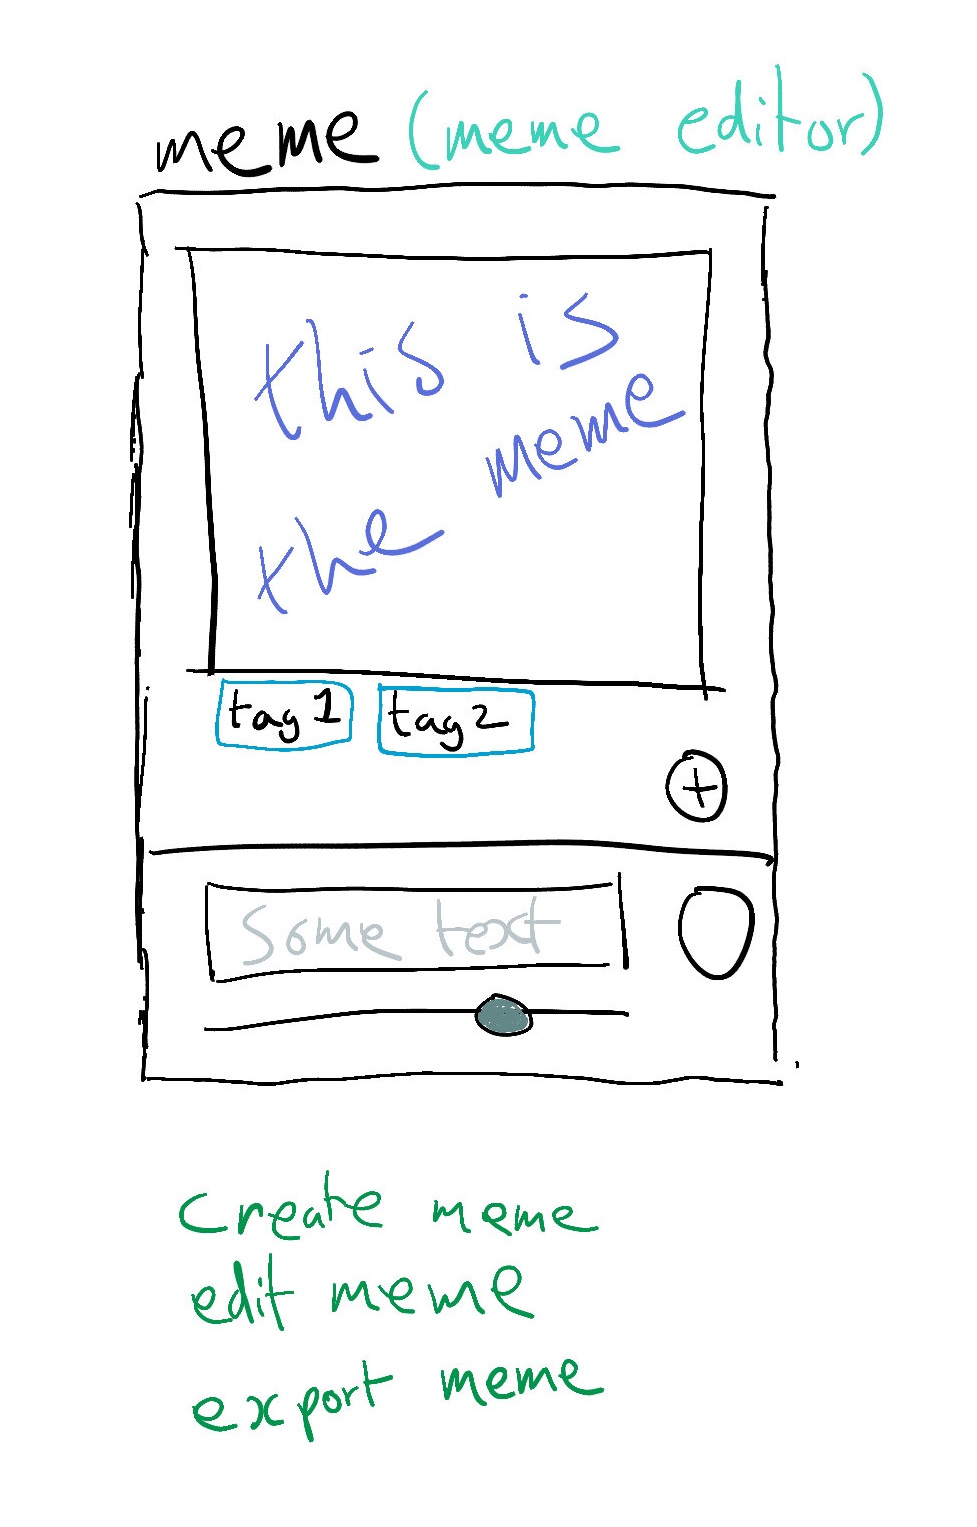 meme (meme editor)
this is
the meme
tag 1 tag 2
+
Some text
create meme
edit meme
export meme